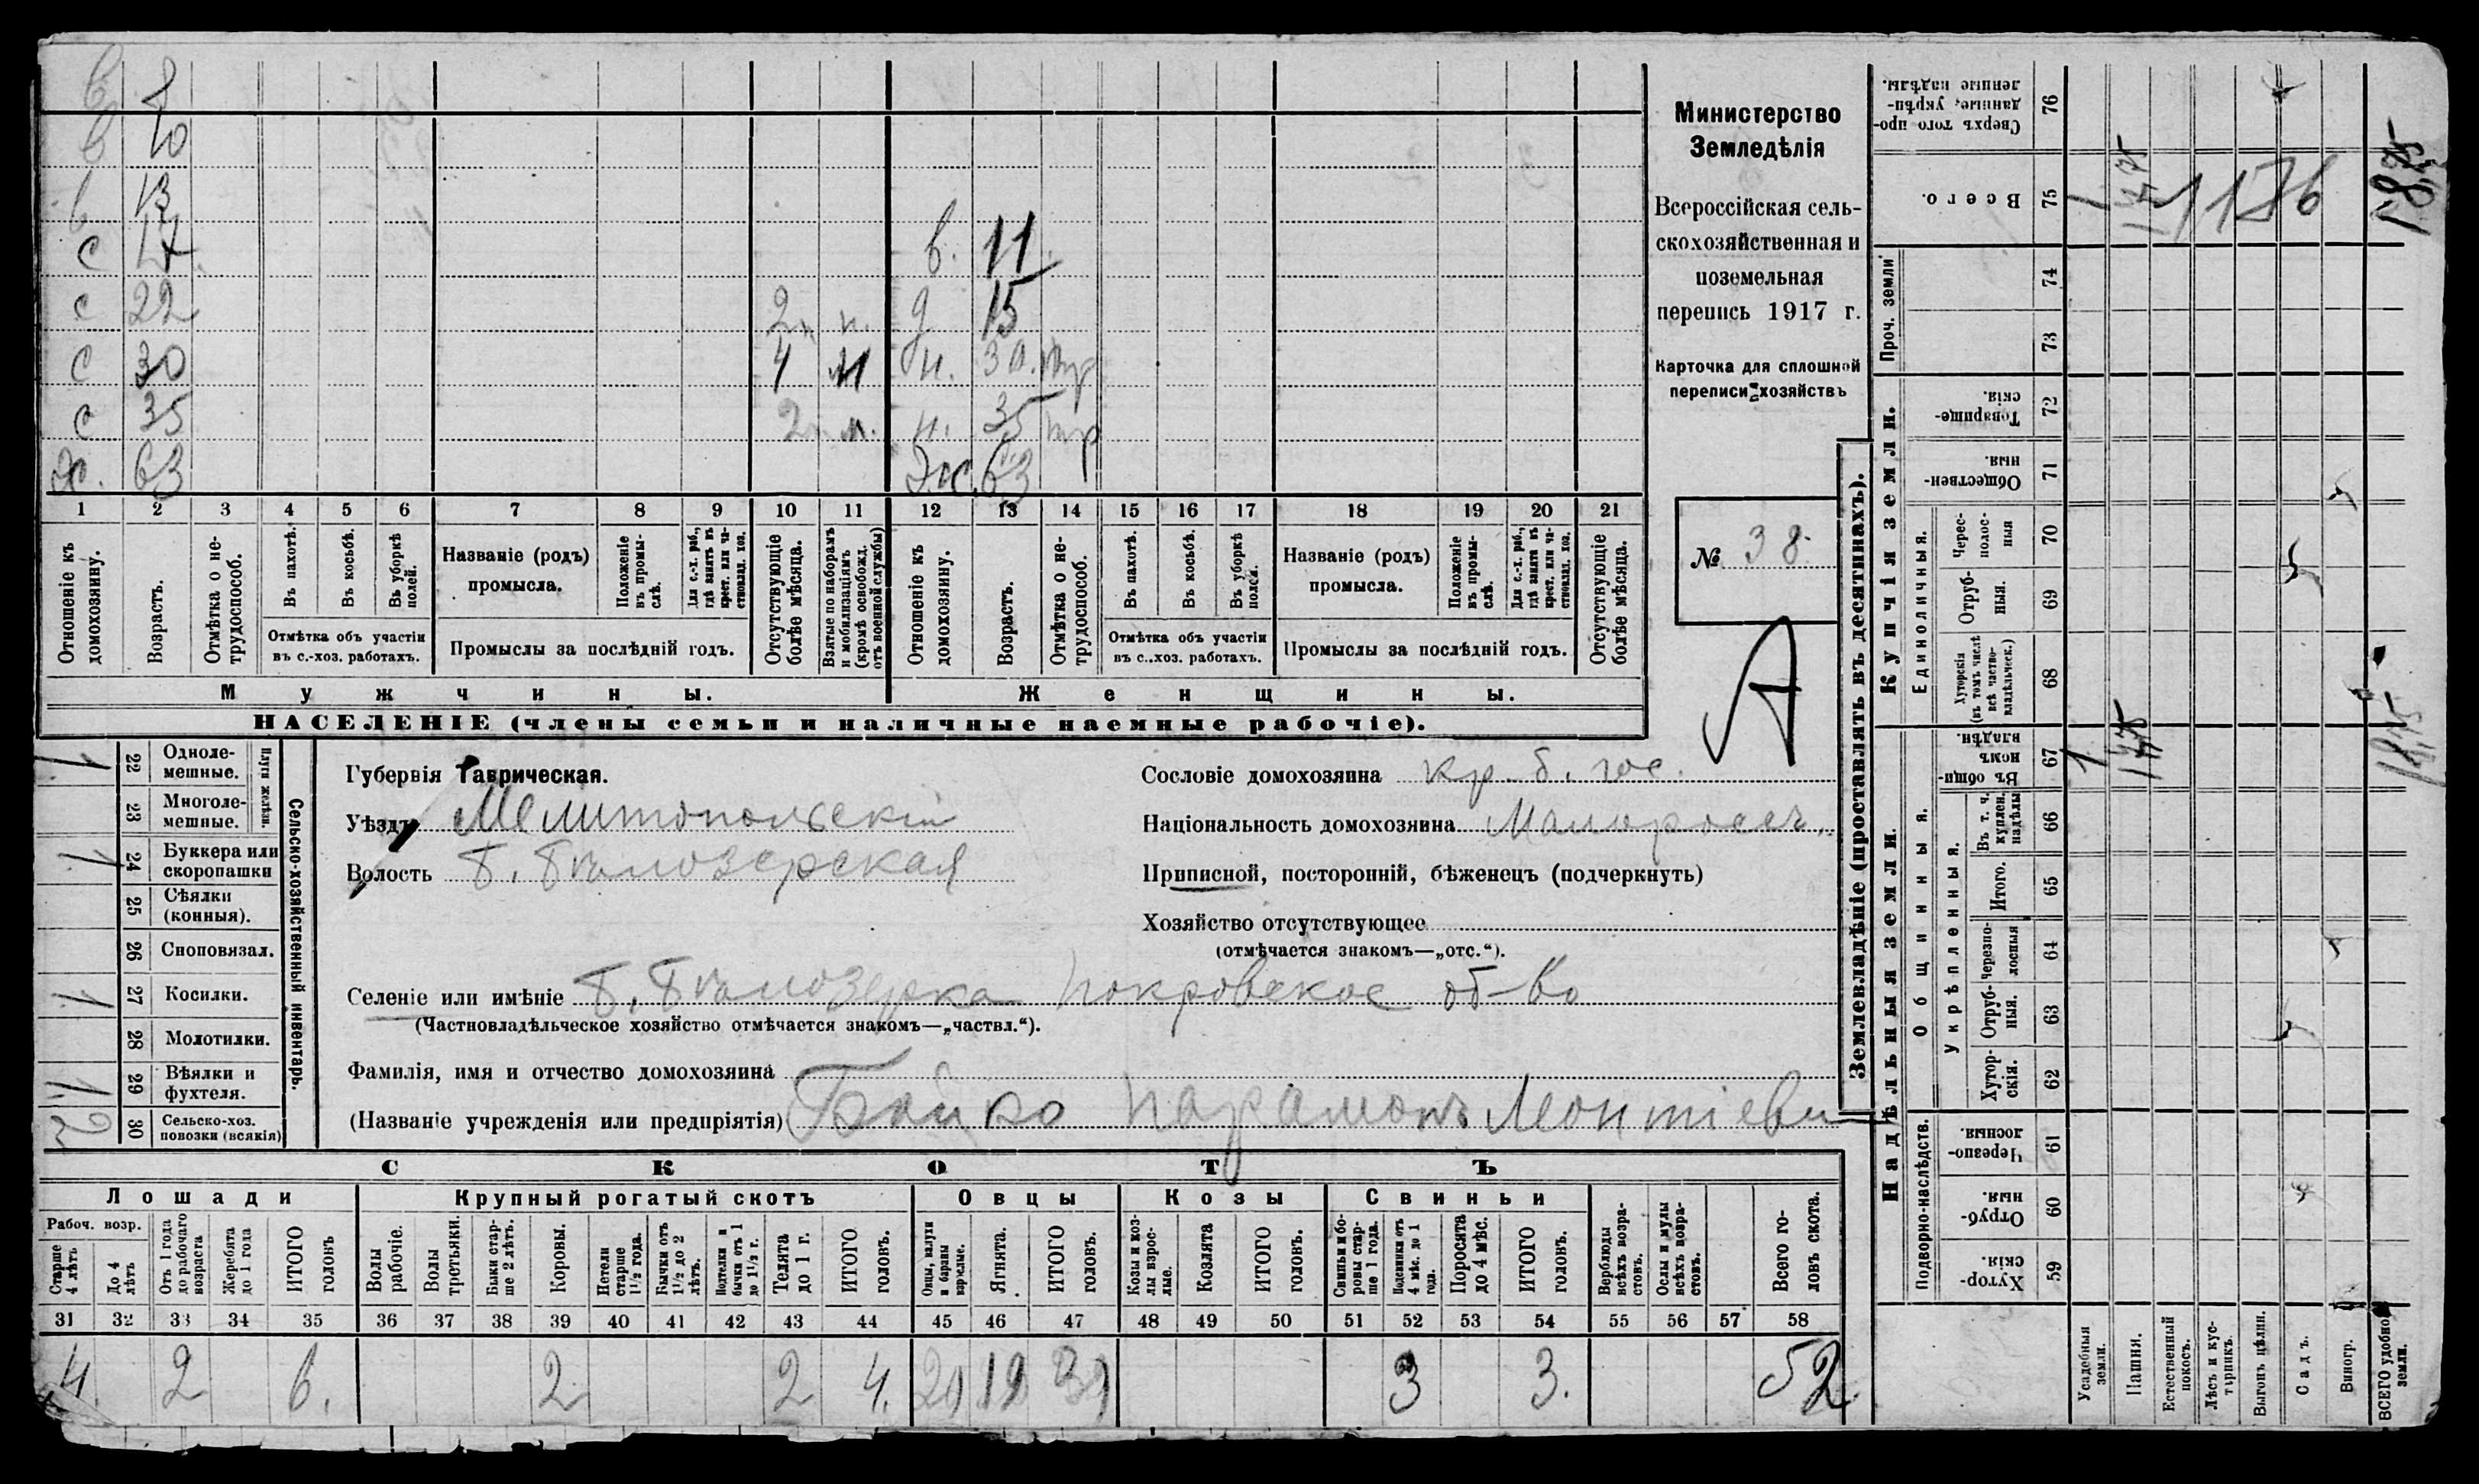 в 8
в 10
в 13
с 17 в. 11
с 22 2 м. д 15
с 30 4 м н. 30. тр
с 35 2 м. н. 35 тр
Хс. 63 Жс. 63
1 2 3 4 5 6 7 8 9 10 11 12 13 14 15 16 17 18 19 20 21
Отношеніе къ домохозяину.
Возрастъ.
Отмѣтка о не-трудоспособ.
Въ пахотѣ.
Въ косьбѣ.
Въ уборкѣ полей.
Отмѣтка объ участіи
въ с.-хоз. работахъ.
Названіе (родъ)
промысла.
Положеніе въ промы-слѣ.
Для с.-х. раб., гдѣ занятъ въ крест. или ча-стновлад. хоз.
Промыслы за послѣдній годъ.
Отсутствующіе болѣе мѣсяца.
Взятые по наборамъ и мобилизаціямъ (кромѣ освобожд. отъ военной службы)
Отношеніе къ домохозяину.
Возрастъ.
Отмѣтка о не-трудоспособ.
Въ пахотѣ.
Въ косьбѣ.
Въ уборкѣ полей.
Отмѣтка объ участіи
въ с.-хоз. работахъ.
Названіе (родъ)
промысла.
Положеніе въ промы-слѣ.
Для с.-х. раб., гдѣ занятъ въ крест. или ча-стновлад. хоз.
Промыслы за послѣдній годъ.
Отсутствующіе болѣе мѣсяца.
Мужчины. Женщины.
НАСЕЛЕНІЕ (члены семьи и наличные наемные рабочіе).
Министерство
Земледѣлія
Всероссійская сель-
скохозяйственная и
поземельная
перепись 1917 г.
Карточка для сплошной
переписи хозяйствъ
№ 38.
А
Сельско-хозяйственный инвентарь.
Плуги желѣзн.
1 22 Одноле-мешные.
23 Многоле-мешные.
1 24 Буккера или скоропашки
25 Сѣялки (конныя).
26 Сноповязал.
1 27 Косилки.
28 Молотилки.
1 29 Вѣялки и фухтеля.
2 30 Сельско-хоз. повозки (всякія)
Губернія Таврическая.
Уѣздъ Мелитопольскій
Волость Б. Бѣлозерская
Сословіе домохозяина кр. б. гос.
Національность домохозяина Малороссъ.
Приписной, посторонній, бѣженецъ (подчеркнуть)
Хозяйство отсутствующее
(отмѣчается знакомъ—„отс.“).
Селеніе или имѣніе Б. Бѣлозерка Покровское об-во
(Частновладѣльческое хозяйство отмѣчается знакомъ—„частвл.“).
Фамилія, имя и отчество домохозяина
(Названіе учрежденія или предпріятія) Бойко Парамонъ Леонтіеви
СКОТЪ
Лошади Крупный рогатый скотъ Овцы Козы Свиньи
Рабоч. возр.
Старше 4 лѣтъ
До 4 лѣтъ
Отъ 1 года до рабочаго возраста
Жеребята до 1 года
ИТОГО головъ
Волы рабочіе.
Волы третьяки.
Быки стар-ше 2 лѣтъ.
Коровы.
Нетели старше 1½ года.
Бычки отъ 1½ до 2 лѣтъ.
Подтелки и бычки отъ 1 до 1½ г.
Телята до 1 г.
ИТОГО головъ.
Овцы, валухи и бараны взрослые.
Ягнята.
ИТОГО головъ.
Козы и коз-лы взрос-лые.
Козлята
ИТОГО головъ.
Свиньи и бо-ровы стар-ше 1 года.
Подсвинки отъ 4 мѣс. до 1 года.
Поросята до 4 мѣс.
ИТОГО головъ.
Верблюды всѣхъ возра-стовъ.
Ослы и мулы всѣхъ возра-стовъ.
Всего го-ловъ скота.
31 32 33 34 35 36 37 38 39 40 41 42 43 44 45 46 47 48 49 50 51 52 53 54 55 56 57 58
4. 2 6. 2 2 4. 20 19 39 3 3. 52
Землевладѣніе (проставлять въ десятинахъ).
Купчія земли.
Надѣльныя земли.
Сверхъ того про-данные, укрѣп-ленные надѣлы. 76
Всего. 75 1 1775 1875
Проч. земли
74
73
Товарище-скія. 72
Обществен-ныя. 71
Единоличныя.
Черес-полос-ныя 70
Отруб-ныя. 69
Хуторскія (въ томъ числѣ всѣ частно-владѣльческ.) 68
Общинныя.
Въ общи-номъ владѣн. 67 1 1775 1875
Въ т. ч. куплен. надѣлы 66
Укрѣпленныя.
Итого. 65
Черезпо-лосныя 64
Отруб-ныя. 63
Хутор-скія. 62
Подворно-наслѣдств.
Черезпо-лосныя. 61
Отруб-ныя. 60
Хутор-скія. 59
Усадебныя земли.
Пашня.
Естественный покосъ.
Лѣсъ и кус-тарникъ.
Выгонъ цѣлин.
Садъ.
Виногр.
ВСЕГО удобной земли.